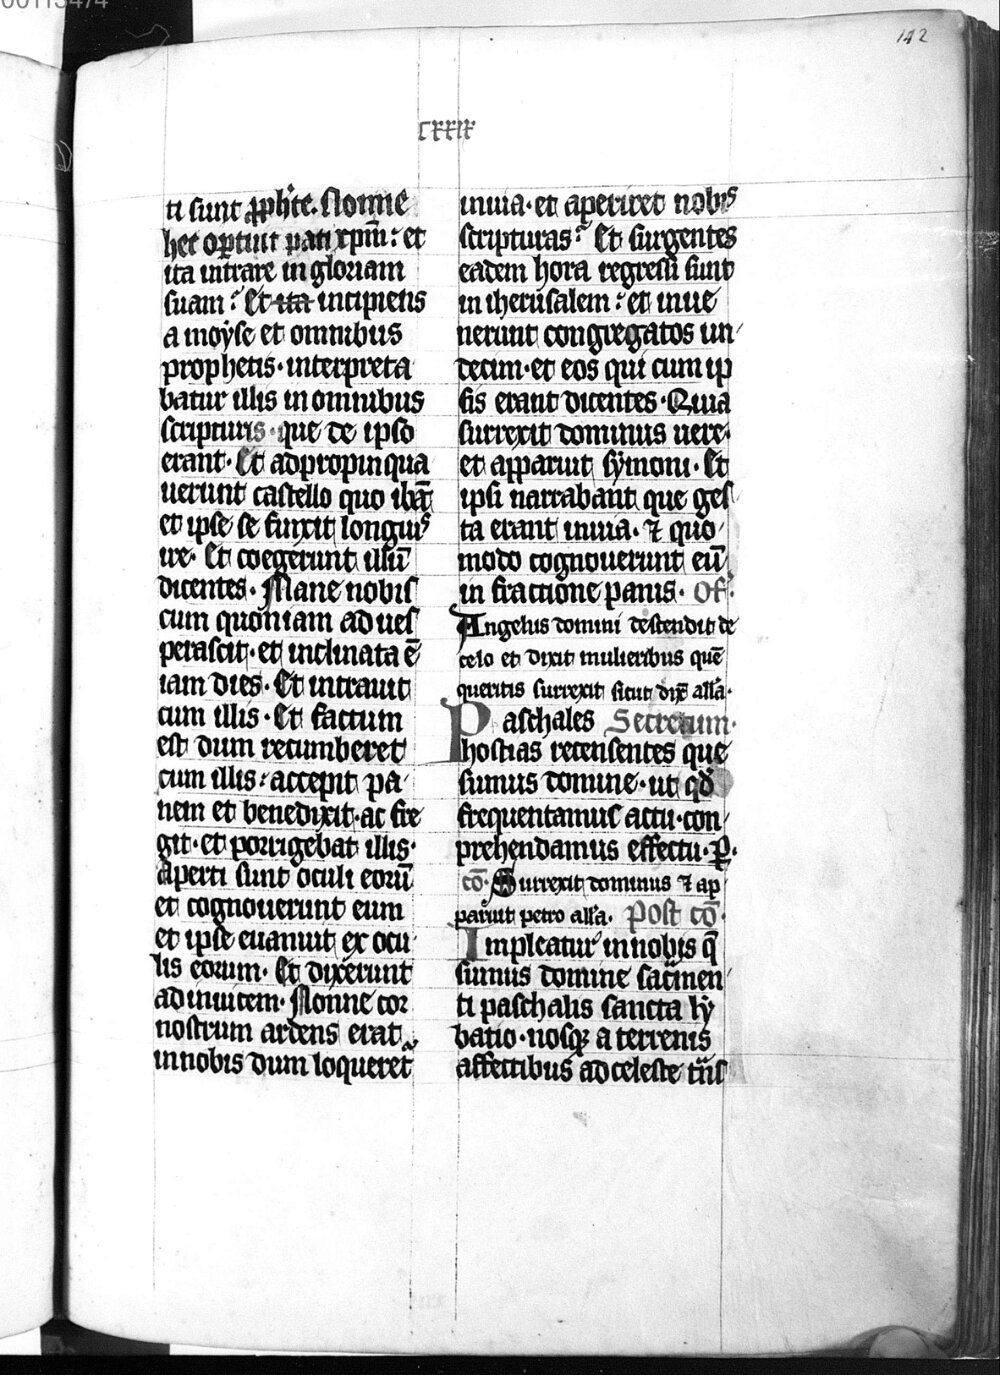 00113474
142
cxxix
ti sunt ꝓphēte. Nonne
hec oꝑtuit pati xp̄m: et
ita intrare in gloriam
suam? Et ita incipiens
a moyse et omnibus
prophetis· interpreta
batur illis in omnibus
scripturis· que de ipso
erant· Et adpropinqua
uerunt castello quo ibāt
et ipse se finxit longius
ire· Et coegerunt illū
dicentes· Mane nobis
cum quoniam ad ues
perascit· et inclinata ē
iam dies· Et intrauit
cum illis· Et factum
est dum recumberet
cum illis: accepit pa
nem et benedixit· ac fre
git· et porrigebat illis·
Aperti sunt oculi eorū
et cognouerunt eum
et ipse euanuit ex ocu
lis eorum· Et dixerunt
ad inuicem· Nonne cor
nostrum ardens erat
in nobis dum loqueret᷑
in uia· et aperiret nobis
scripturas? Et surgentes
eadem hora regressi sunt
in iherusalem: et inue
nerunt congregatos un
decim· et eos qui cum ip
sis erant dicentes· Quia
surrexit dominus uere·
et apparuit symoni· Et
ipsi narrabant que ges
ta erant in uia· ⁊ quo
modo cognouerunt eū
in fractione panis· Of̄·
Angelus domini descendit de
celo et dixit mulieribus quē
queritis surrexit sicut dix̄ all'a·
Paschales Secretum·
hostias recensentes que
sumus domine· ut qd̄
frequentamus actu· con
prehendamus effectu· ꝑ·
cō· Surrexit dominus ⁊ ap
paruit petro all'a· Post cō·
Impleatur in nobis q̄
sumus domine sac̄men
ti paschalis sancta ly
batio· nosqꝫ a terrenis
affectibus ad celeste t̄ns